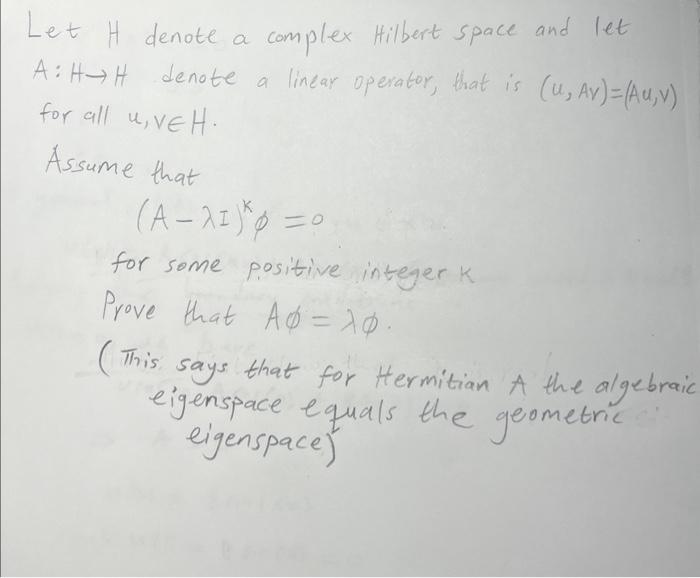 Let H denote a complex Hilbert space and let
A: H→H denote a linear operator, that is (u, Av)=(Au,v)
for all u,v∈H.
Assume that
(A-λI)^k φ = 0
for some positive integer k
Prove that Aφ = λφ.
(This says that for Hermitian A the algebraic
eigenspace equals the geometric
eigenspace)